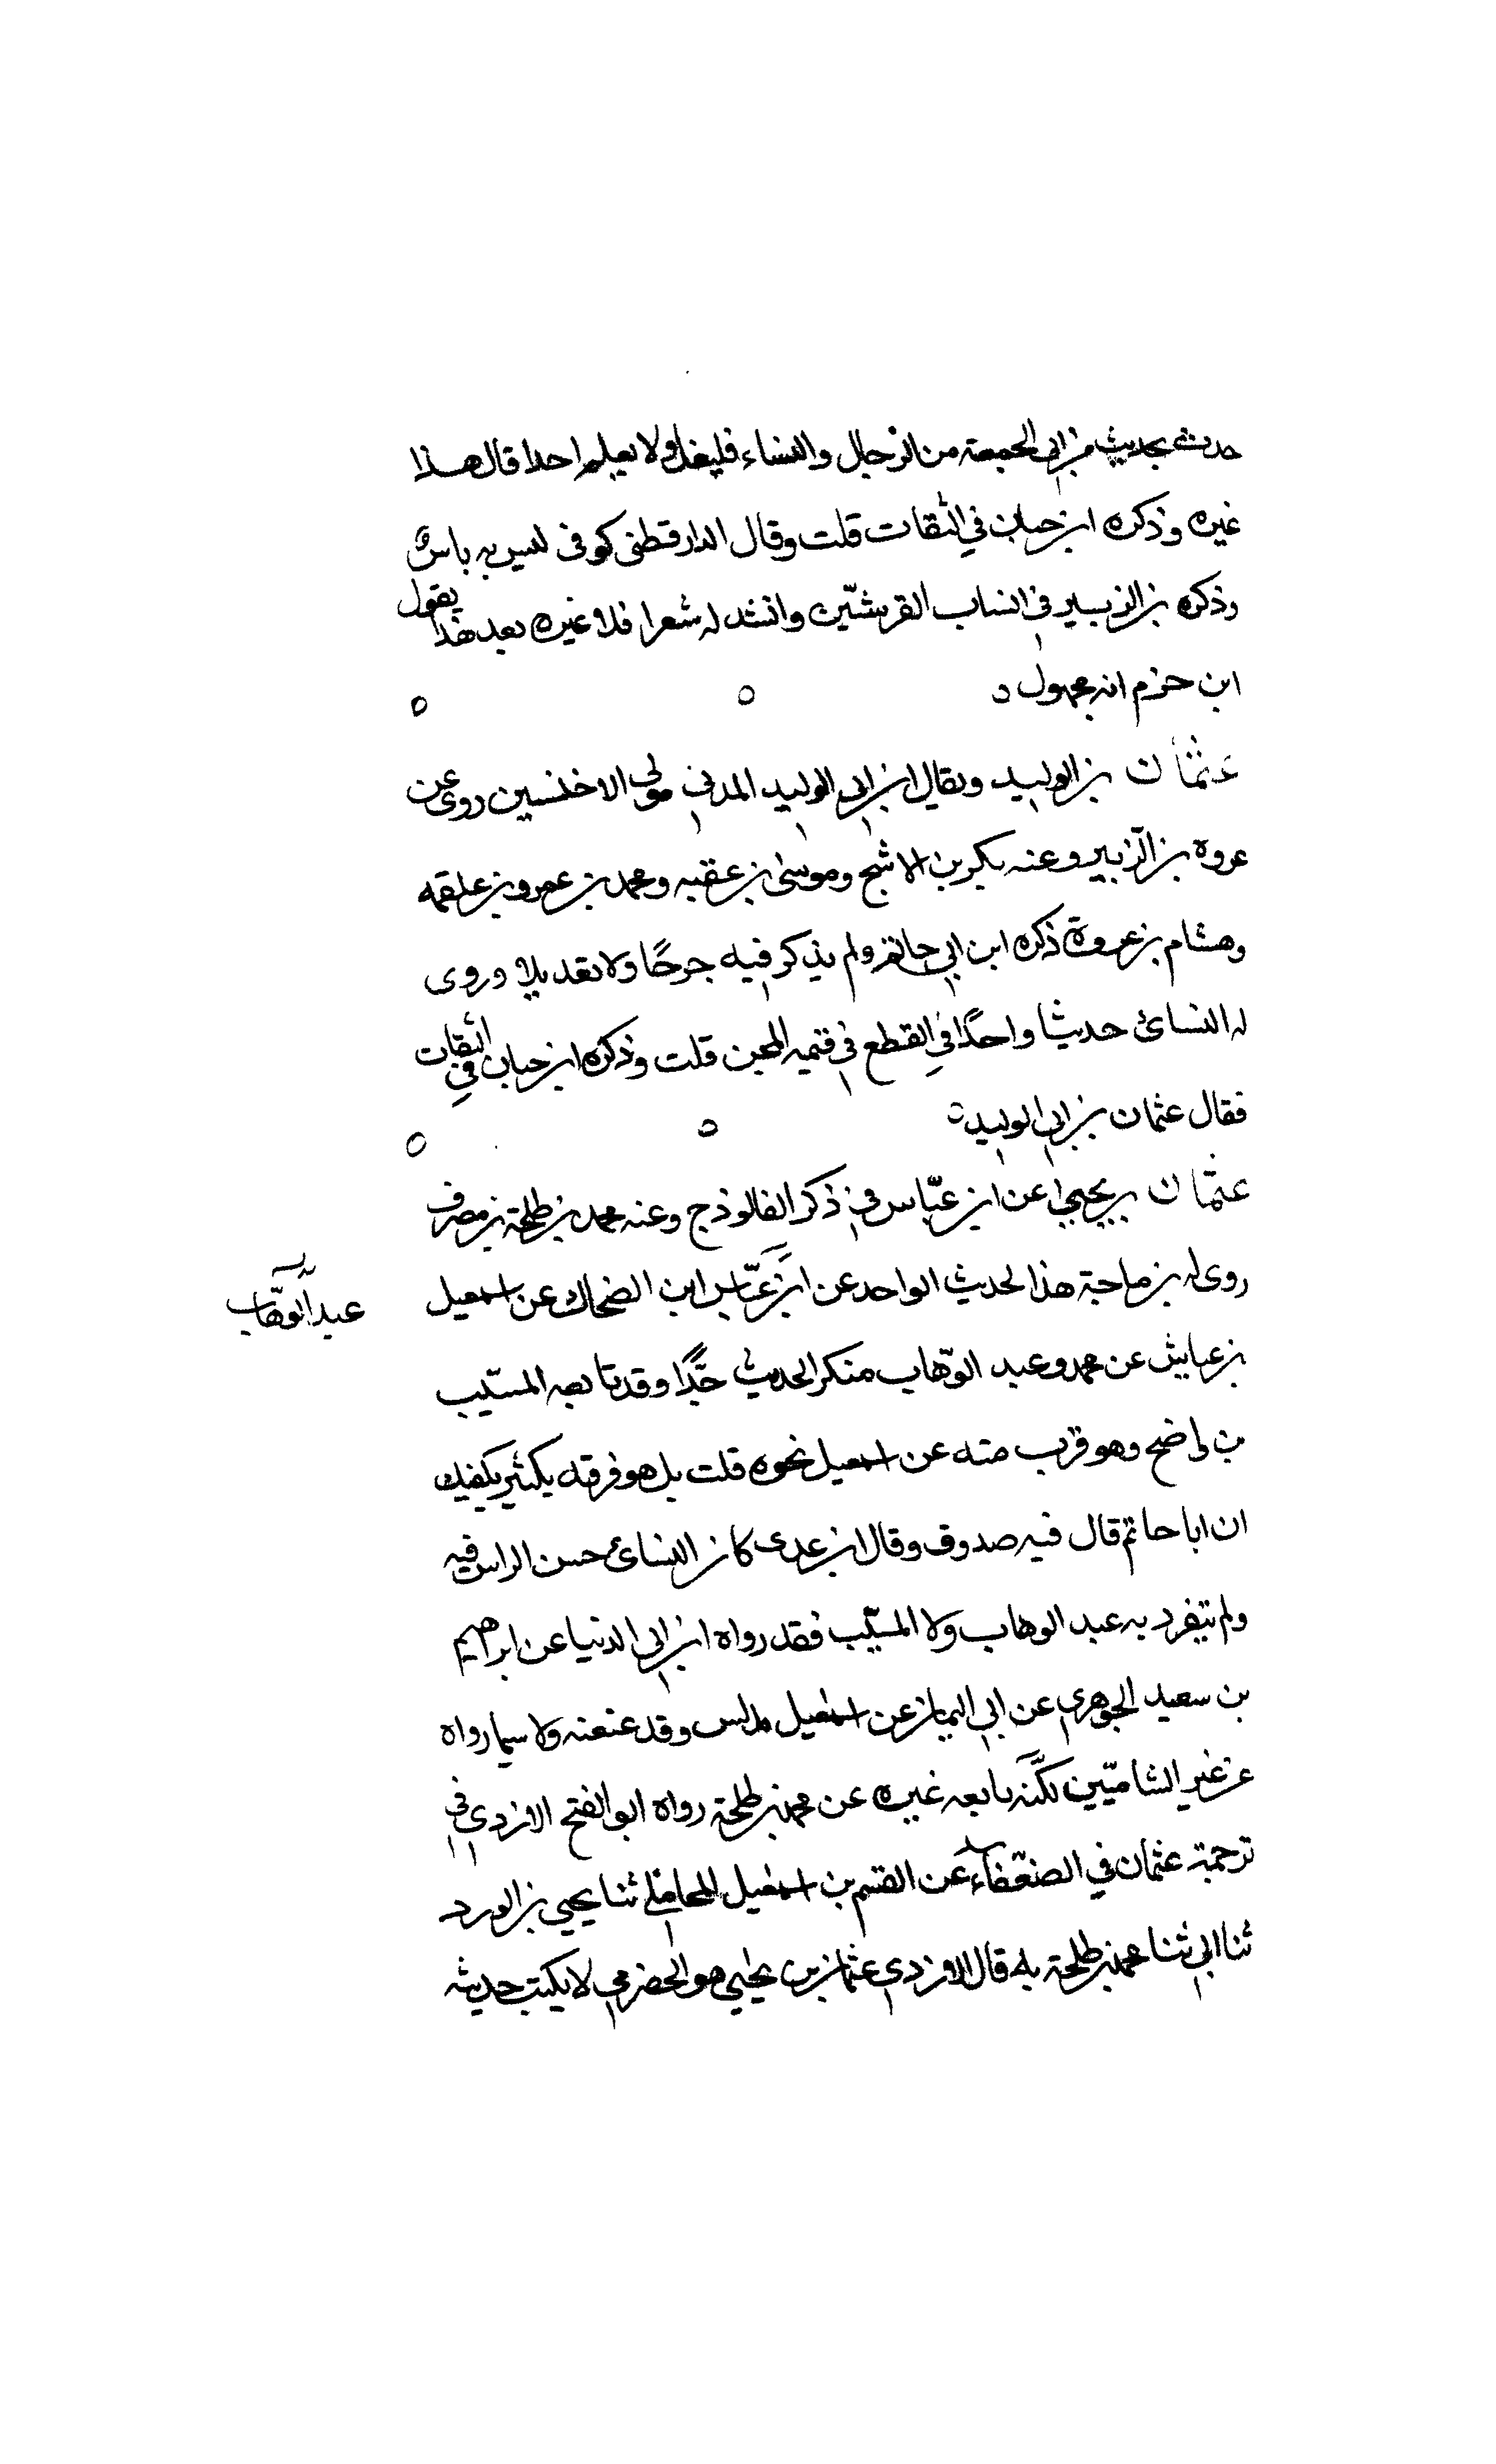 حدث بحديث من اتى الجمعة من الرجال والنساء فليغتسل ولا يعلم احدا قال هذا
غيره وذكره ابن حبان في الثقات قلت وقال الدارقطني كوفي ليس به باس
وذكره بن الزبير في انساب القرشيّين وانشد له شعرا فلا غيره بعد هذا يقول
ابن حزم انه مجهول
عثمان بن الوليد ويقال ابن ابي الوليد المدني مولى الاخنسيين روى عن
عروة بن الزبير وعنه بكير بن الاشج وموسى بن عقبه ومحمد بن عمرو بن علقمه
وهشام بن عروة ذكره ابن ابي حاتم ولم يذكر فيه جرحًا ولا تعديلا وروى
له النسائ حديثا واحدًا في القطع في قيمه المجن قلت وذكره ابن حبان في الثقات
فقال عثمان بن ابي الوليد
عثمان بن يحيى عن ابن عبّاس في ذكر الفالوذج وعنه محمد بن طلحة بن مصرف
روى له بن ماجة هذا الحديث الواحد عن ابن عبّاس ابن الضحاك عن اسمعيل
عبد الوهّاب
بن عياش عن محمد وعبد الوهّاب منكر الحديث جدًّا وقد تابعه المسيّب
بن واضح وهو قريب منه عن اسمعيل نحوه قلت بل هو فرقه بكثير يكفيك
ان ابا حاتم قال فيه صدوق وقال ابن عدى كان النسائ حسن الراي فيه
ولم يتفرد به عبد الوهاب ولا المسيّب فقد رواه ابن ابي الدنيا عن ابراهيم
بن سعيد الجوهرى عن ابي اليمان عن اسمعيل مدلس وقد عنعنه ولا سيما رواه
عن غير الشاميّين لكنّه تابعه غيره عن محمد بن طلحة رواه ابو الفتح الازدي في
ترجمة عثمان في الضعفاء عن القسم بن اسمعيل المحاملي ثنا يحيى بن الورد
ثنا ابي ثنا محمد بن طلحة به قال الازدي عثمان بن يحيى هو الحضرمي لا يكتب حديثه